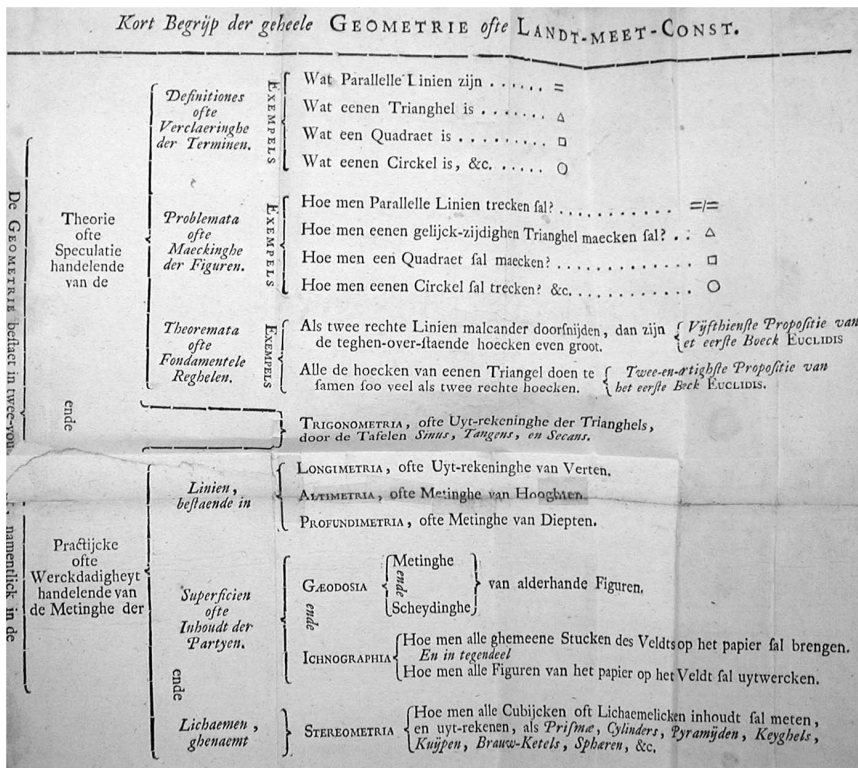 Kort Begrijp der geheele GEOMETRIE ofte LANDT-MEET-CONST.
De GEOMETRIE bestaet in
namentlick in de
Theorie
ofte
Speculatie
handelende
van de
ende
Practijcke
ofte
Werckdadigheyt
handelende van
de Metinghe der
Definitiones
ofte
Verclaeringhe
der Terminen.
EXEMPELS
Wat Parallelle Linien zijn ...... =
Wat eenen Trianghel is ....... △
Wat een Quadraet is ......... □
Wat eenen Circkel is, &c. ..... ○
Problemata
ofte
Maeckinghe
der Figuren.
EXEMPELS
Hoe men Parallelle Linien trecken sal? ........... =/=
Hoe men eenen gelijck-zijdighen Trianghel maecken sal? .. △
Hoe men een Quadraet sal maecken? ............. □
Hoe men eenen Circkel sal trecken? &c. ........... ○
Theoremata
ofte
Fondamentele
Reghelen.
EXEMPELS
Als twee rechte Linien malcander doorsnijden, dan zijn
de teghen-over-staende hoecken even groot.
Vijfthienste Propositie van
et eerste Boeck EUCLIDIS
Alle de hoecken van eenen Triangel doen te
samen soo veel als twee rechte hoecken.
Twee-en-dertighste Propositie van
het eerste Boeck EUCLIDIS.
TRIGONOMETRIA, ofte Uyt-rekeninghe der Trianghels,
door de Tafelen Sinus, Tangens, en Secans.
Linien,
bestaende in
LONGIMETRIA, ofte Uyt-rekeninghe van Verten.
ALTIMETRIA, ofte Metinghe van Hooghten.
PROFUNDIMETRIA, ofte Metinghe van Diepten.
Superficien
ofte
Inhoudt der
Partyen.
GÆODOSIA
Metinghe
ende
Scheydinghe
van alderhande Figuren,
ende
ICHNOGRAPHIA
Hoe men alle ghemeene Stucken des Veldts op het papier sal brengen.
En in tegendeel
Hoe men alle Figuren van het papier op het Veldt sal uytwercken.
ende
Lichaemen,
ghenaemt
STEREOMETRIA
Hoe men alle Cubijcken oft Lichaemelicken inhoudt sal meten,
en uyt-rekenen, als Prismæ, Cylinders, Pyramijden, Keyghels,
Kuijpen, Brauw-Ketels, Sphæren, &c.